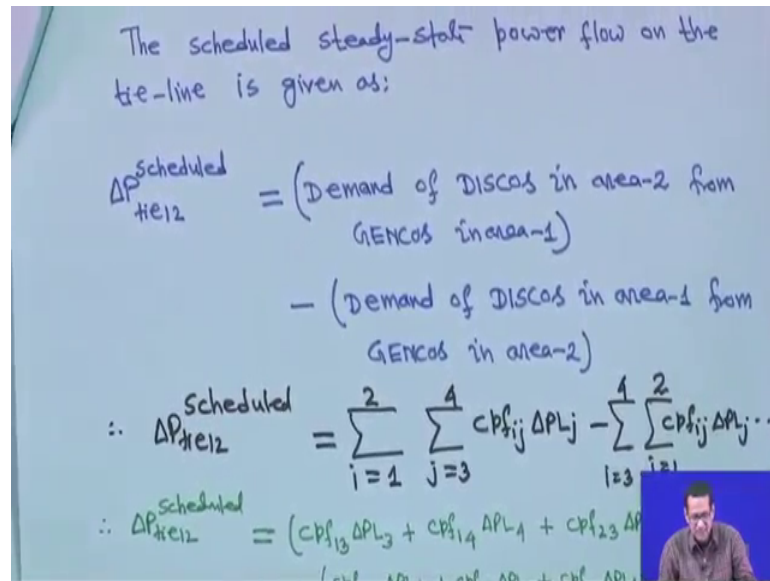 The scheduled steady-state power flow on the
tie-line is given as:
ΔP_tie12^scheduled = (Demand of DISCOS in area-2 from
GENCOS in area-1)
− (Demand of DISCOS in area-1 from
GENCOS in area-2)
∴ ΔP_tie12^scheduled = ∑_{i=1}^{2} ∑_{j=3}^{4} cpf_ij ΔPL_j − ∑_{i=3}^{4} ∑_{j=1}^{2} cpf_ij ΔPL_j ..
∴ ΔP_tie12^scheduled = (cpf_13 ΔPL_3 + cpf_14 ΔPL_4 + cpf_23